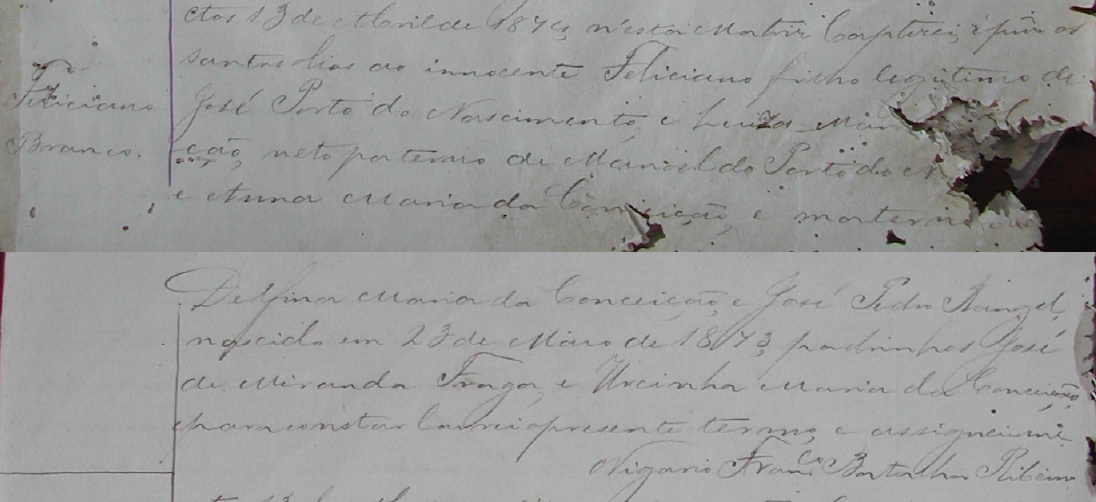 ctos 13 de Abril de 1874, n'esta Matriz baptizei, e puz os
santos olios ao innocente Feliciano filho legitimo de
Feliciano
José Porto do Nascimento, e Luiza Maria
Branco.
ção, neto paterno de Manoel do Porto do N
e Anna Maria da Conceição, e materno
Delfina Maria da Conceição, e José Pedro Rangel,
nascido em 23 de Maio de 1873, padrinhos José
de Miranda Fraga, e Ursinha Maria da Conceição,
para constar lavrei o presente termo, e assignei-me
Vigario Franco. Ribeiro